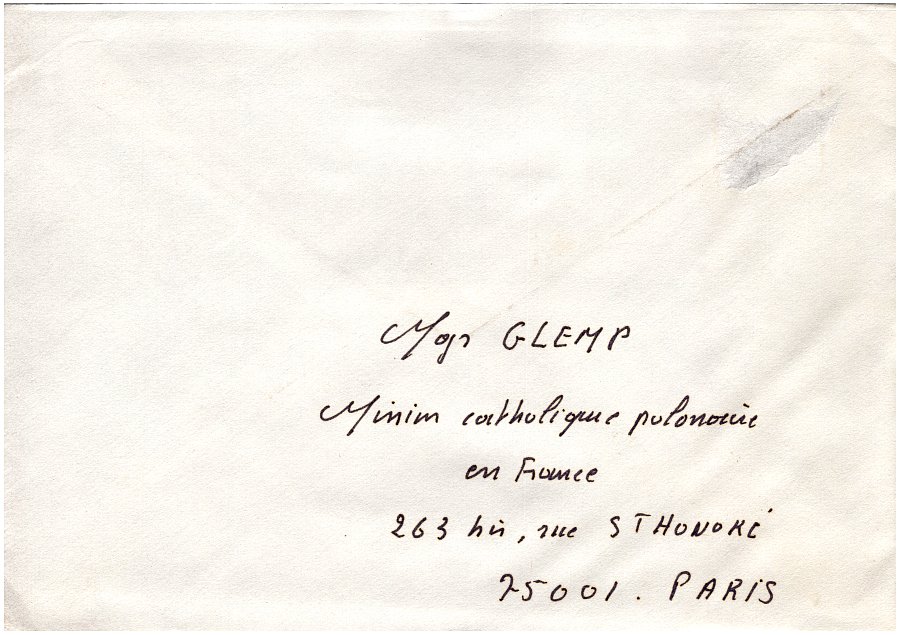 Mgr GLEMP
Mission catholique polonaise
en France
263 bis, rue ST HONORÉ
75001. PARIS